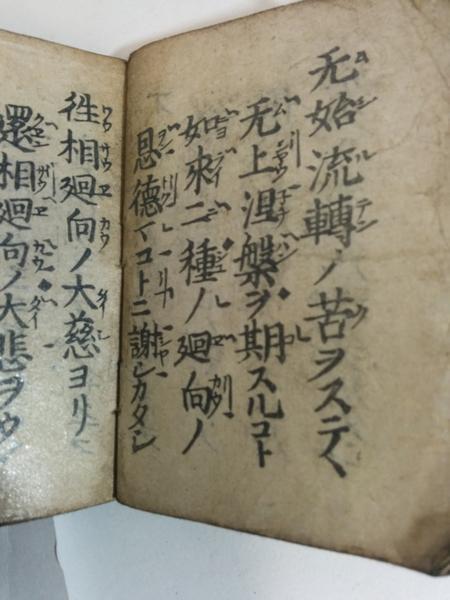 无始流轉ノ苦ヲステヽ
无上涅槃ヲ期スルコト
如來二種ノ廻向ノ
恩德マコトニ謝シカタシ
徃相廻向ノ大慈ヨリ
還相廻向ノ大悲ヲウ